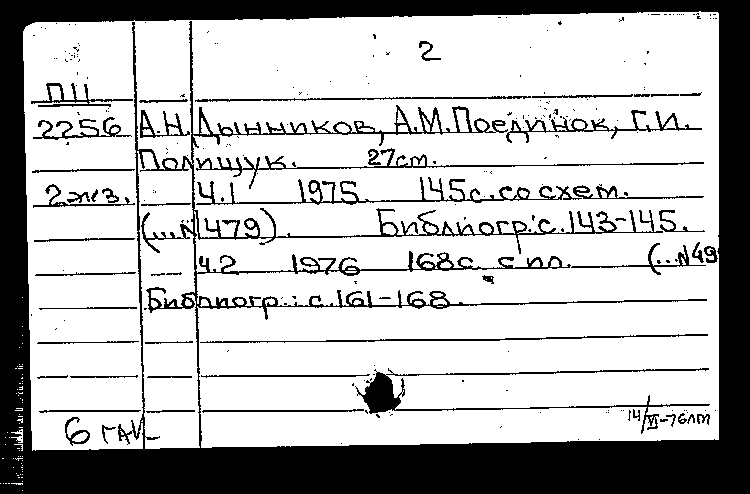 2
П11
2256 А.Н. Дынников, А.М. Поединок, Г.И.
Полищук. 27см.
2экз. Ч.1 1975. 145с. со схем.
(...N 479). Библиогр.: с.143-145.
Ч.2 1976 168с. с ил. (...N49
Библиогр.: с.161-168.
14/VI-76лт